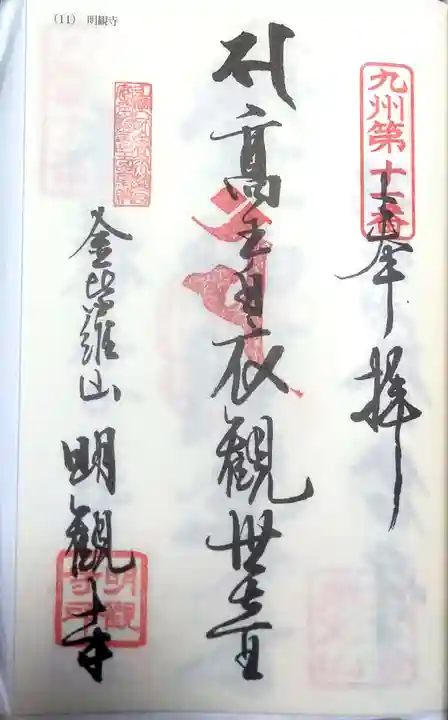 (11) 明観寺
九州第十一番
奉拝
高王白衣観世音
金毘羅山 明観寺
明観寺印